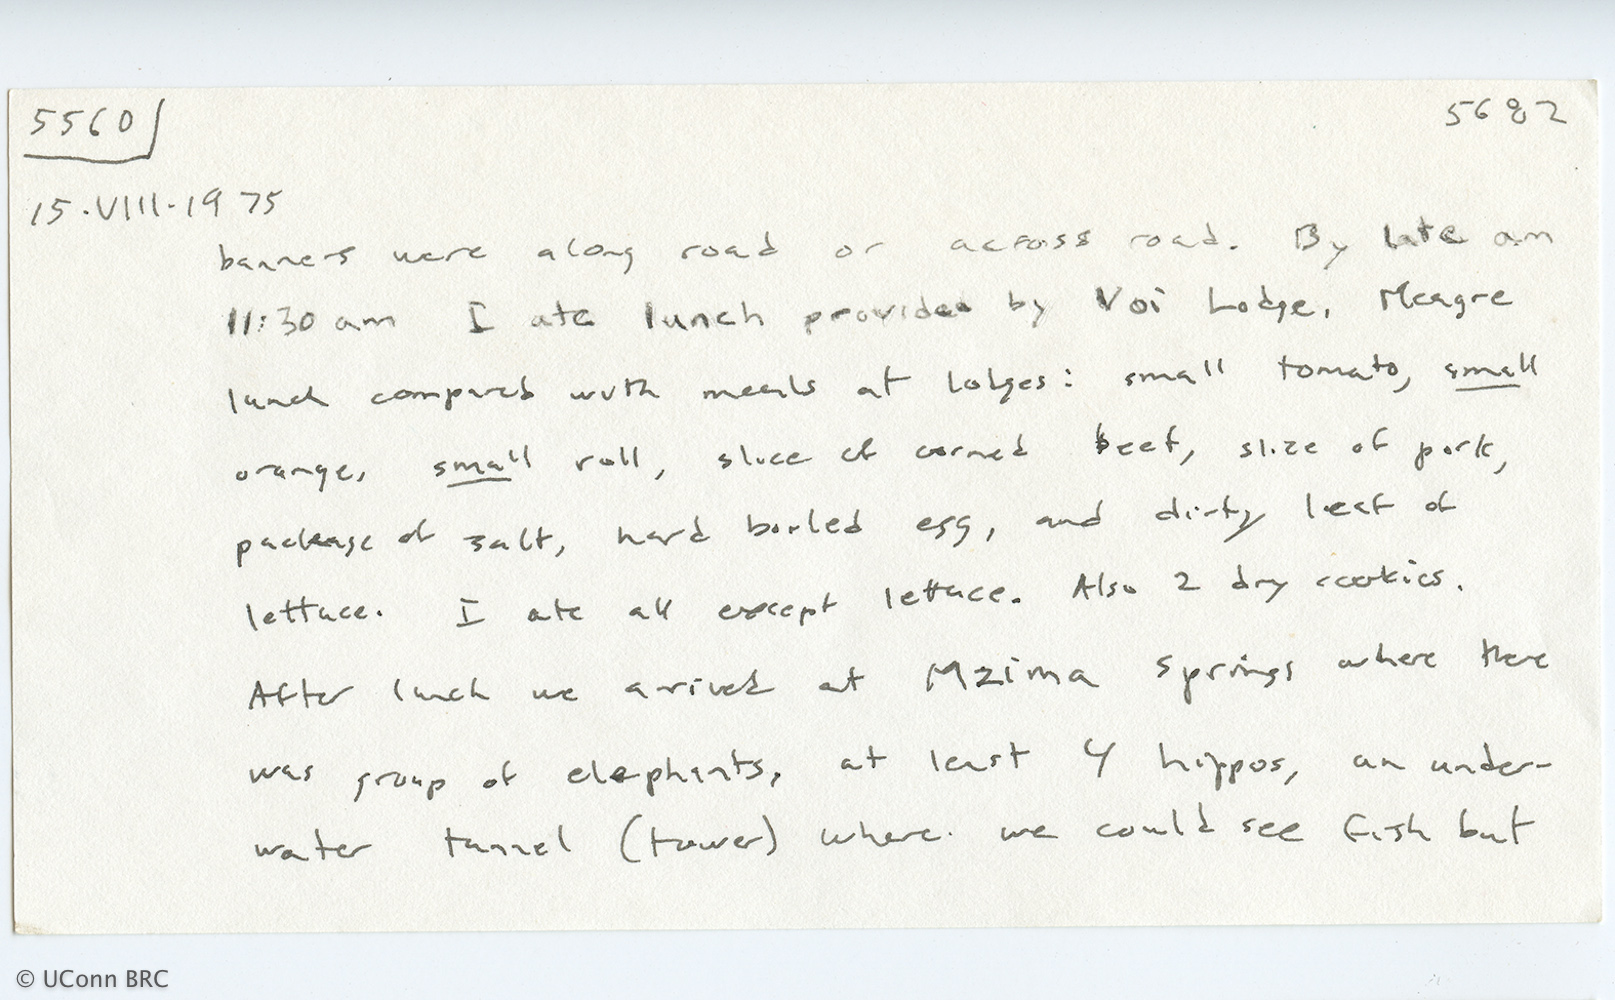 5560 5682
15.VIII.1975
banners were along road or across road. By late am
11:30 am I ate lunch provided by Voi Lodge. Meagre
lunch compared with meals at lodges: small tomato, small
orange, small roll, slice of corned beef, slice of pork,
package of salt, hard boiled egg, and dirty leaf of
lettuce. I ate all except lettuce. Also 2 dry cookies.
After lunch we arrived at Mzima Springs where there
was group of elephants, at least 4 hippos, an under-
water tunnel (tower) where we could see fish but
© UConn BRC